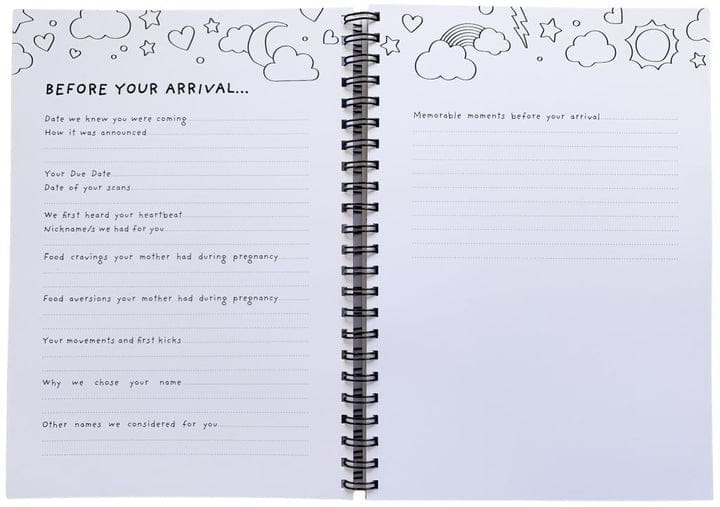 BEFORE YOUR ARRIVAL...
Date we knew you were coming
How it was announced
Your Due Date
Date of your scans
We first heard your heartbeat
Nickname/s we had for you
Food cravings your mother had during pregnancy
Food aversions your mother had during pregnancy
Your movements and first kicks
Why we chose your name
Other names we considered for you
Memorable moments before your arrival